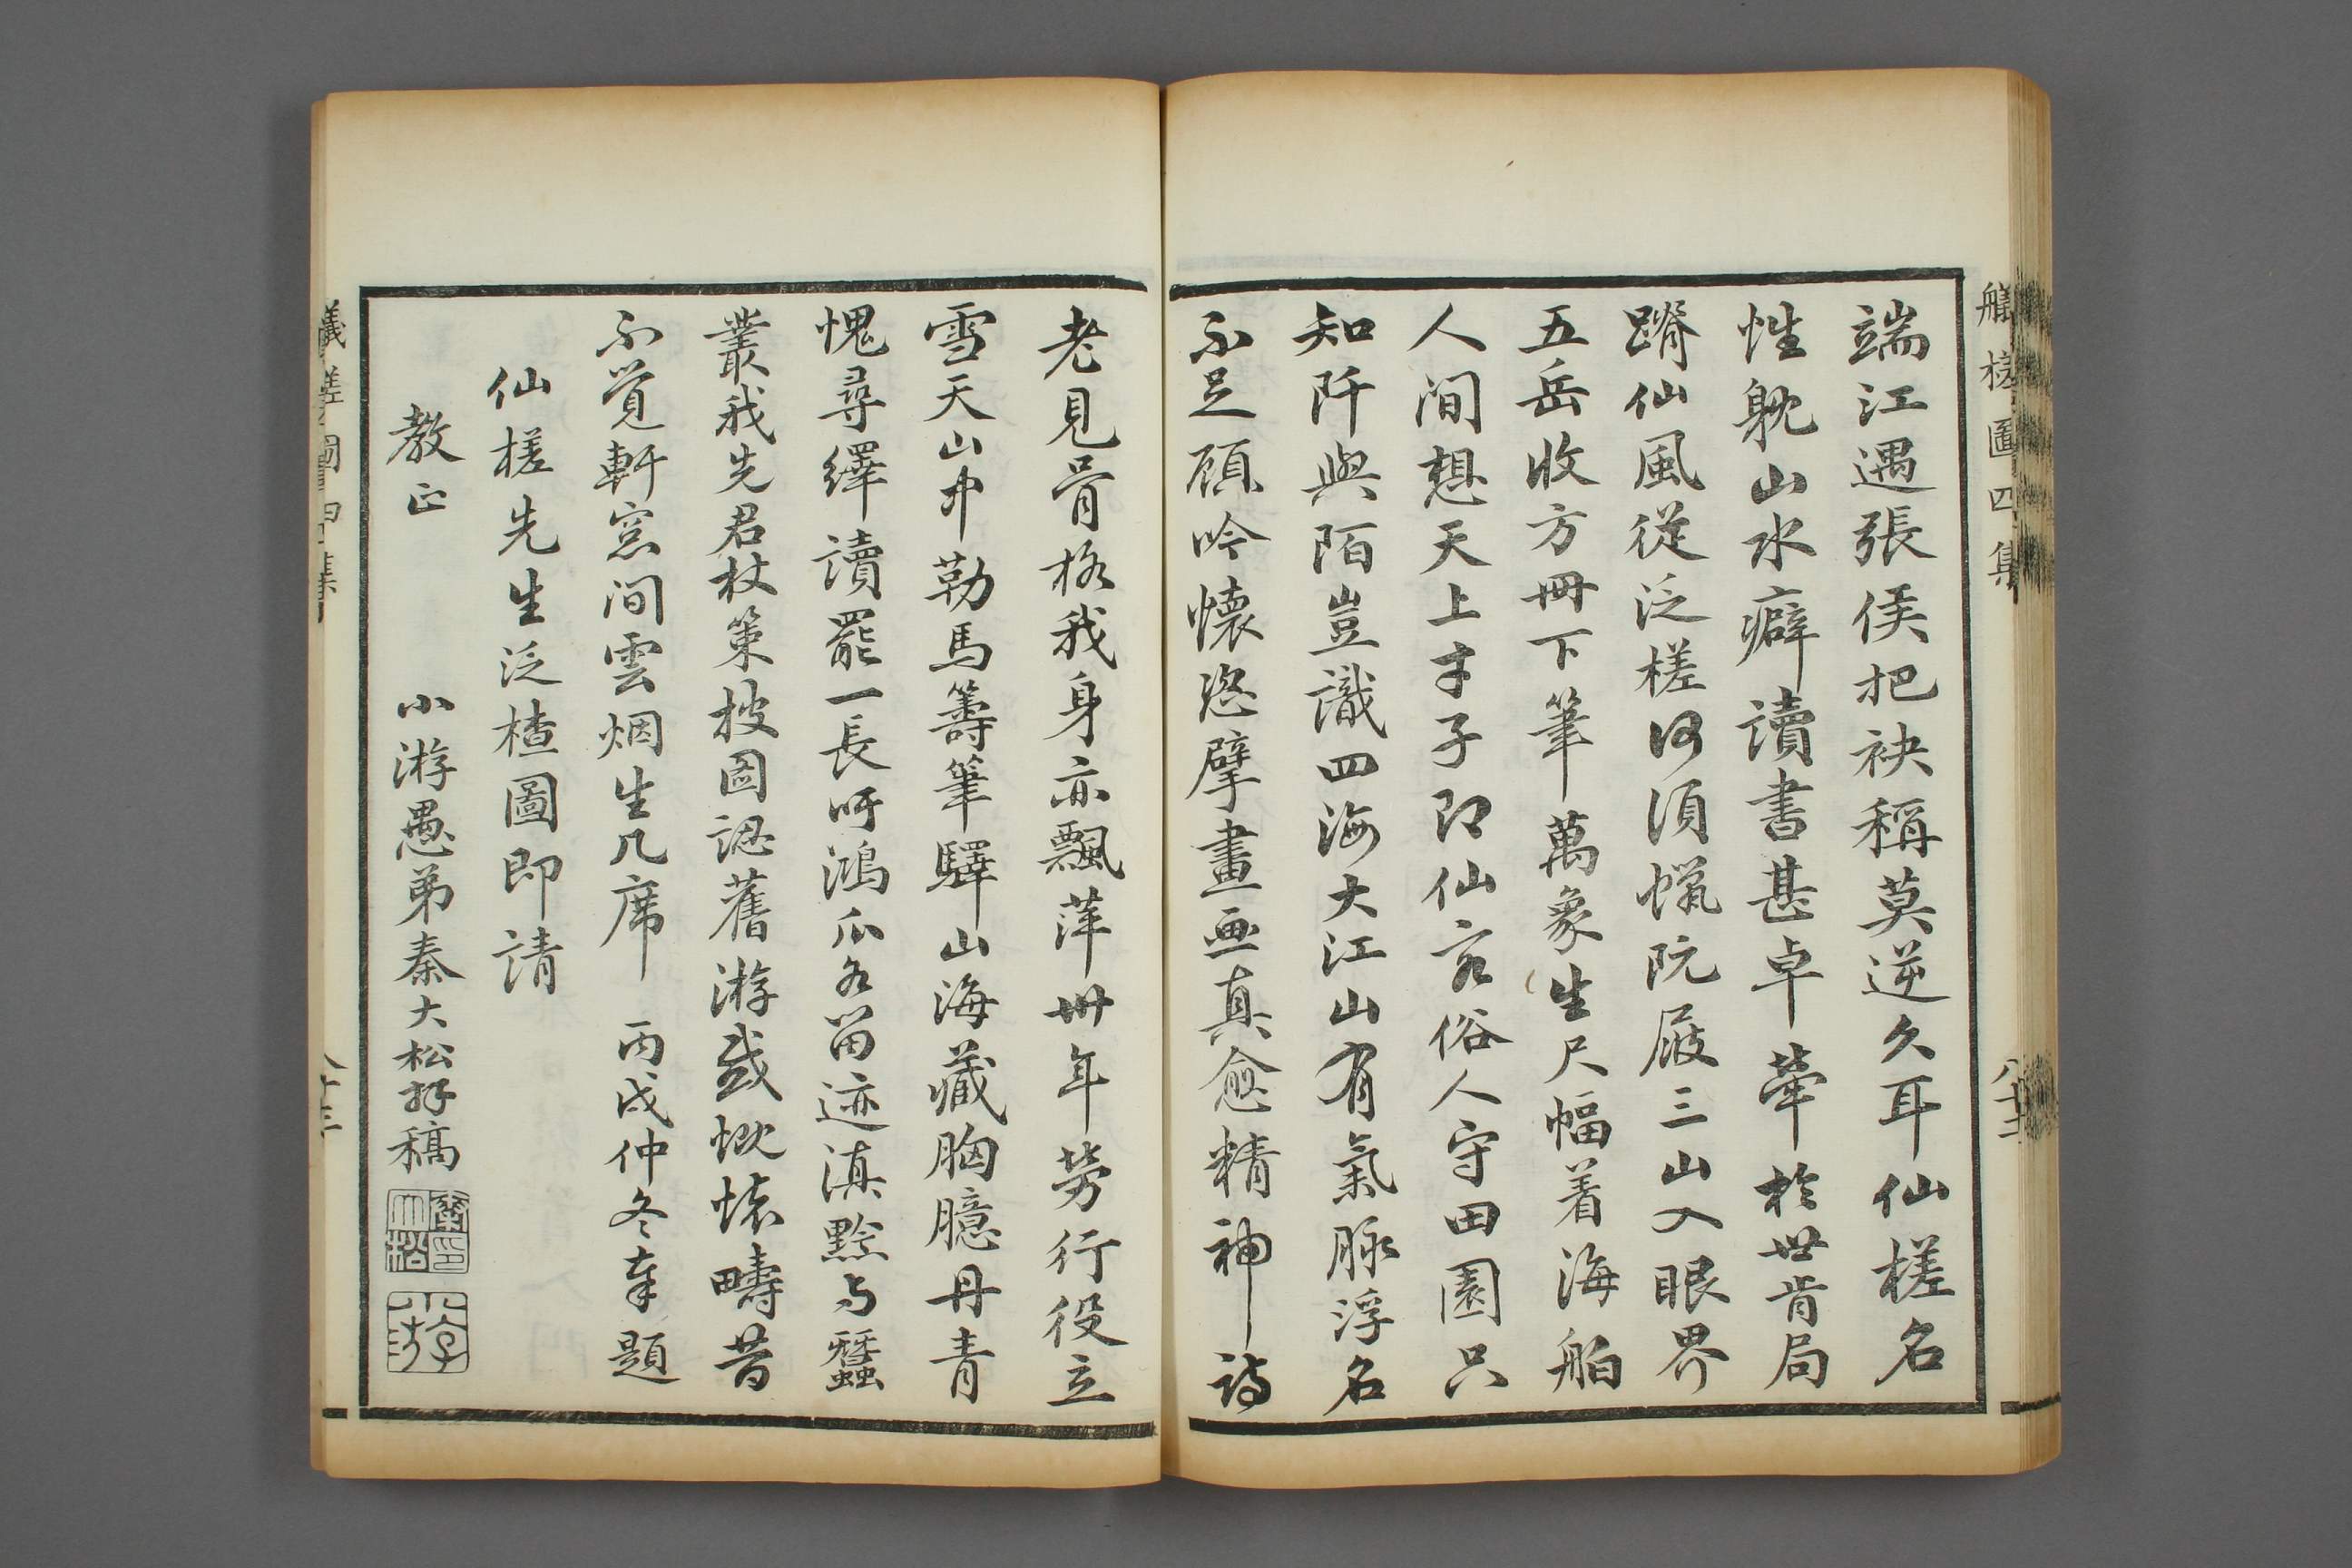 艤槎圖四集
端江遇張侯把袂稱莫逆久耳仙槎名
性躭山水癖讀書甚卓犖於世肯局
蹐仙風從泛槎何須蠟阮屐三山入眼界
五岳收方冊下筆萬象生尺幅着海舶
人间想天上才子即仙客俗人守田園只
知阡與陌豈識四海大江山有氣脉浮名
不足顧吟懷恣擘畫畫真愈精神詩
八十二
老見骨格我身亦飄萍卅年勞行役立
雪天山中勒馬籌筆驛山海藏胸臆丹青
愧尋繹讀罷一長吁鴻爪名留迹滇黔与蠶
叢我先君杖策披圖認舊游感慨懷疇昔
不覚軒窓间雲烟生几席 丙戌仲冬奉題
仙槎先生泛楂圖即請
教正
小游愚弟秦大松拜稿
秦印大松
小游
艤槎圖四集
八十三